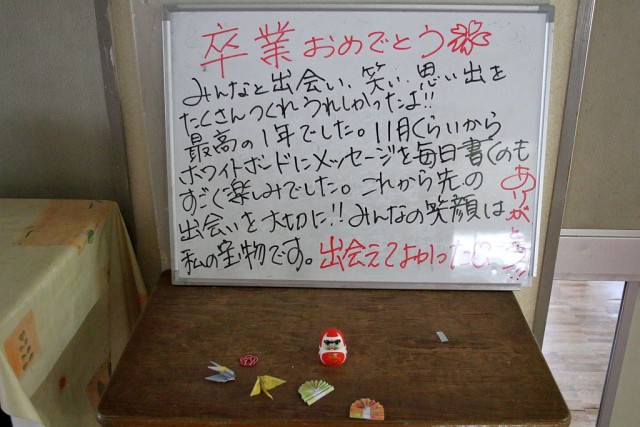 卒業おめでとう
みんなと出会い、笑い、思い出を
たくさんつくれうれしかったよ!!
最高の1年でした。11月くらいから
ホワイトボードにメッセージを毎日書くのも
すごく楽しみでした。これから先の
出会いを大切に!!みんなの笑顔は
私の宝物です。出会えてよかった
ありがとう!!